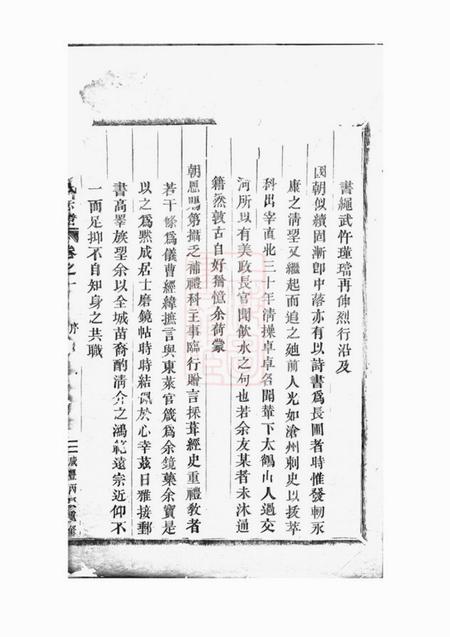 書繩武竹瑾瑤再伸烈行沿及
國朝似續罔漸卽中落亦有以詩書為長圃者時惟發軔永
康之清望又繼起而追之廸前人光如滄州刺史以拔萃
科出宰直北三十年清操卓卓名聞華下太鶴山人過交
河所以有美政長官聞飲水之句也若余友某者未沐通
籍然敦古自好猶憶余荷蒙
朝恩賜第攝乏補禮科主事臨行贈言採葺經史重禮教者
若干條為儀曹經緯摭言與東萊官箴為余鏡藥余寶是
以之為熙成居士磨鏡帖時時結於心幸茲日雅接郵
書高睪族望余以全城苗裔酌清介之鴻範遠宗近仰不
一而足抑不自知身之共職
卷之一
序
咸豐丙